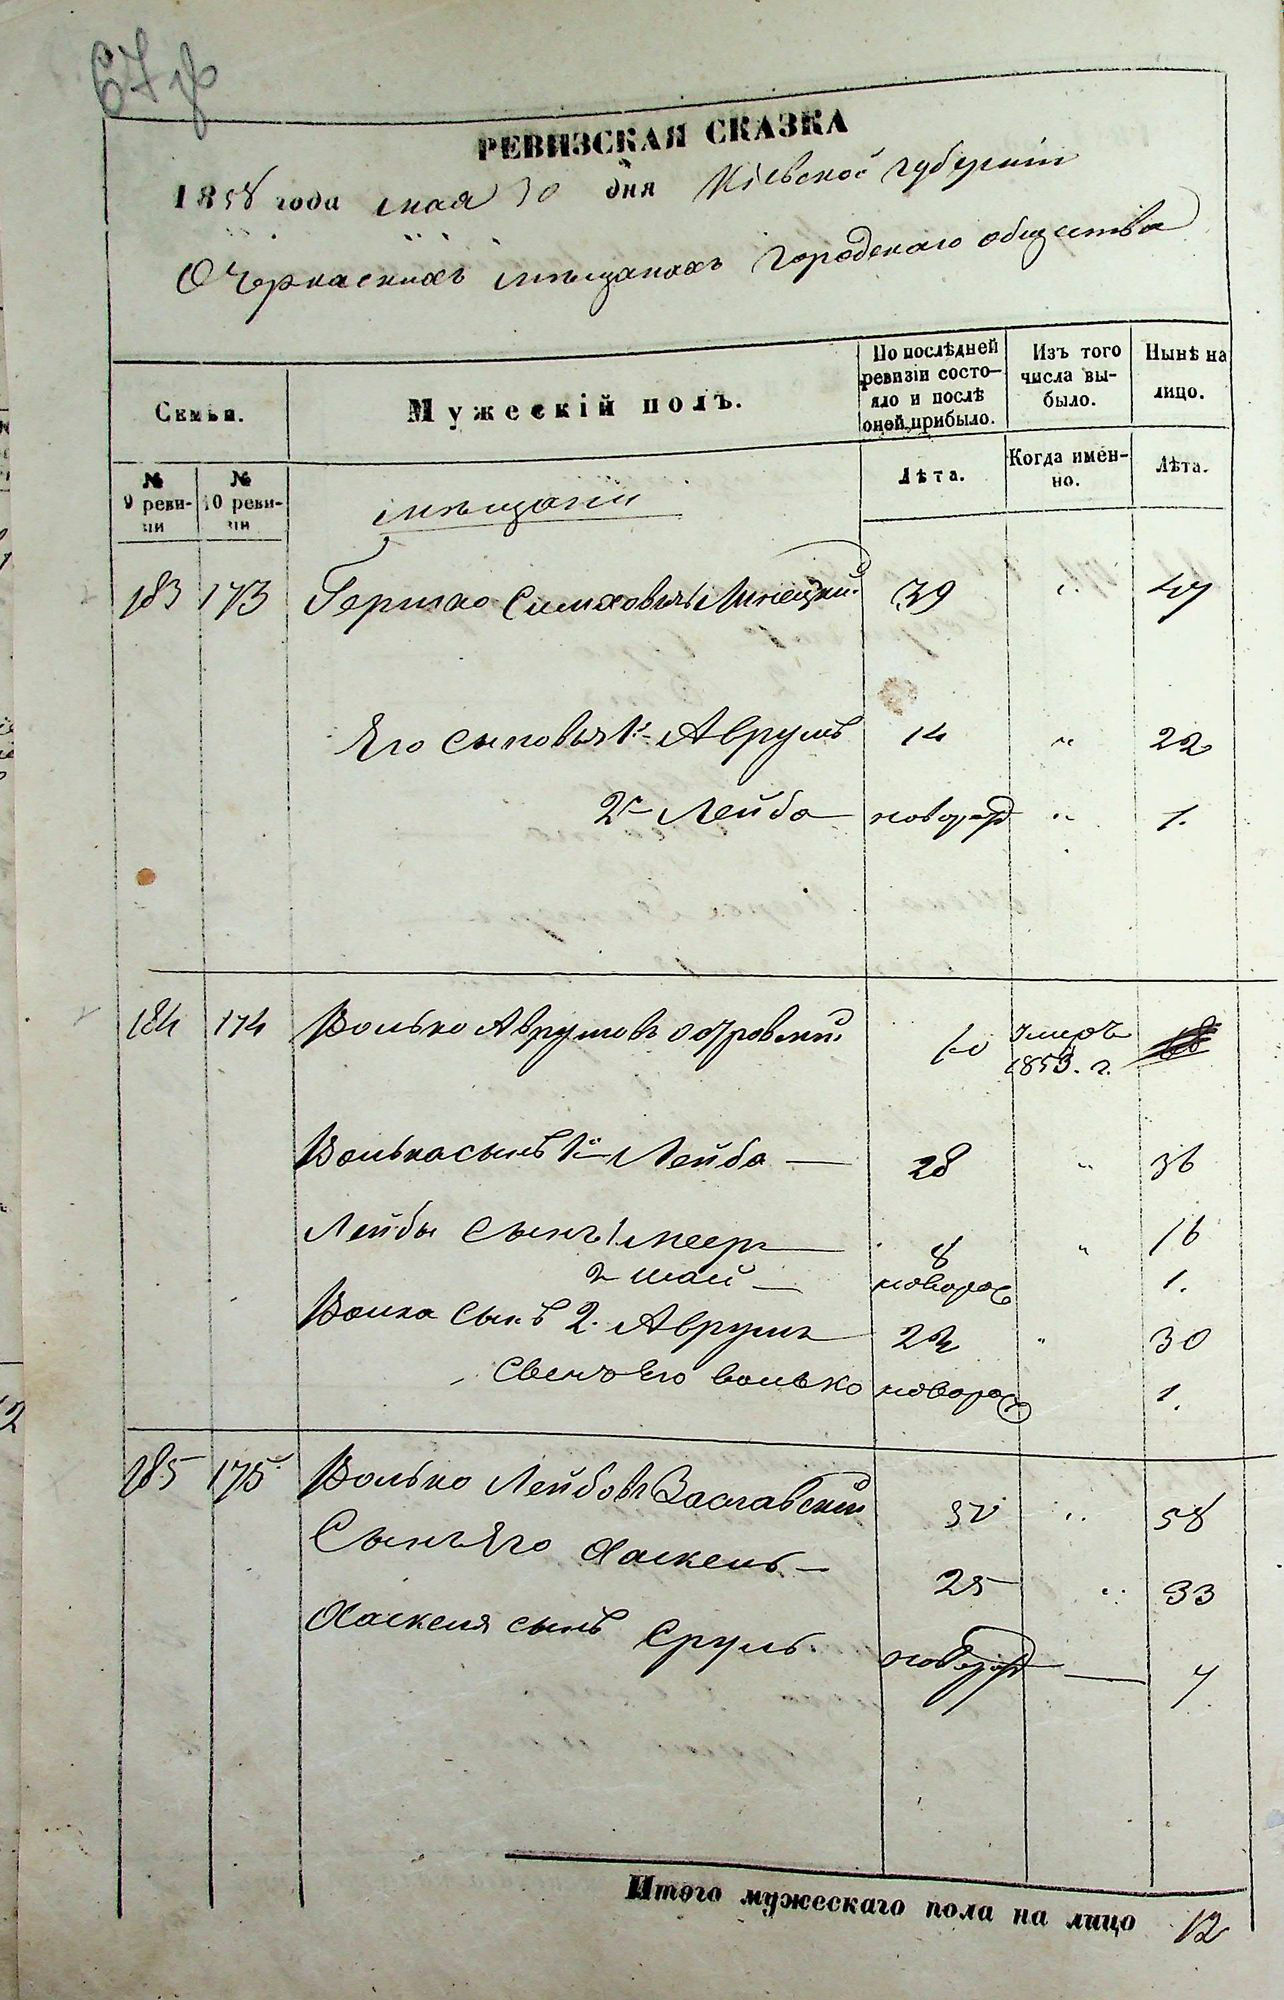 67
РЕВИЗСКАЯ СКАЗКА
1858 года мая 30 дня Кіевской губерніи
О Черкаскихъ мѣщанахъ городскаго общества
Семьи.
Мужескій полъ.
По послѣдней ревизіи состояло и послѣ оной прибыло.
Изъ того числа выбыло.
Нынѣ на лицо.
№ 9 ревизіи
№ 10 ревизіи
Лѣта.
Когда именно.
Лѣта.
мѣщани
183 173 Гершко Симховъ Линецкій 39 " 47
Его сыновья 1й Аврумъ 14 " 22
2й Лейба новорожд " 1.
184 174 Волько Аврумовъ Островский умеръ 1853. г.
Волька сынъ 1й Лейба — 28 " 36
Лейбы сынъ 1 Меер — 8 " 16
2 Шаи — новорож 1.
Волка сынъ 2. Аврумъ 22 " 30
сынъ Его Волько новорож 1.
185 175 Волько Лейбовъ Заславский 50 " 58
Сынъ Его Хаскель — 25 " 33
Хаскеля сынъ Сруль новорожд — 7
Итого мужескаго пола на лицо 12